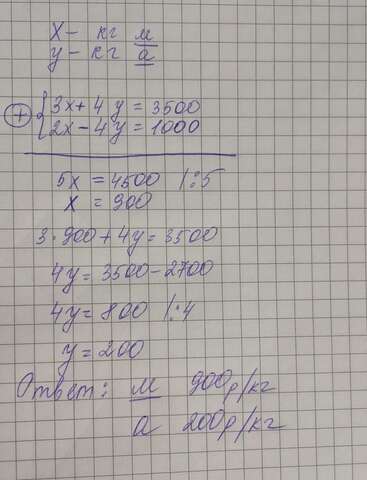 х – кг м
у – кг а
+ { 3х + 4у = 3500
2х – 4у = 1000
5х = 4500 /:5
х = 900
3 · 900 + 4у = 3500
4у = 3500 – 2700
4у = 800 /:4
у = 200
Ответ: м 900р/кг
а 200р/кг